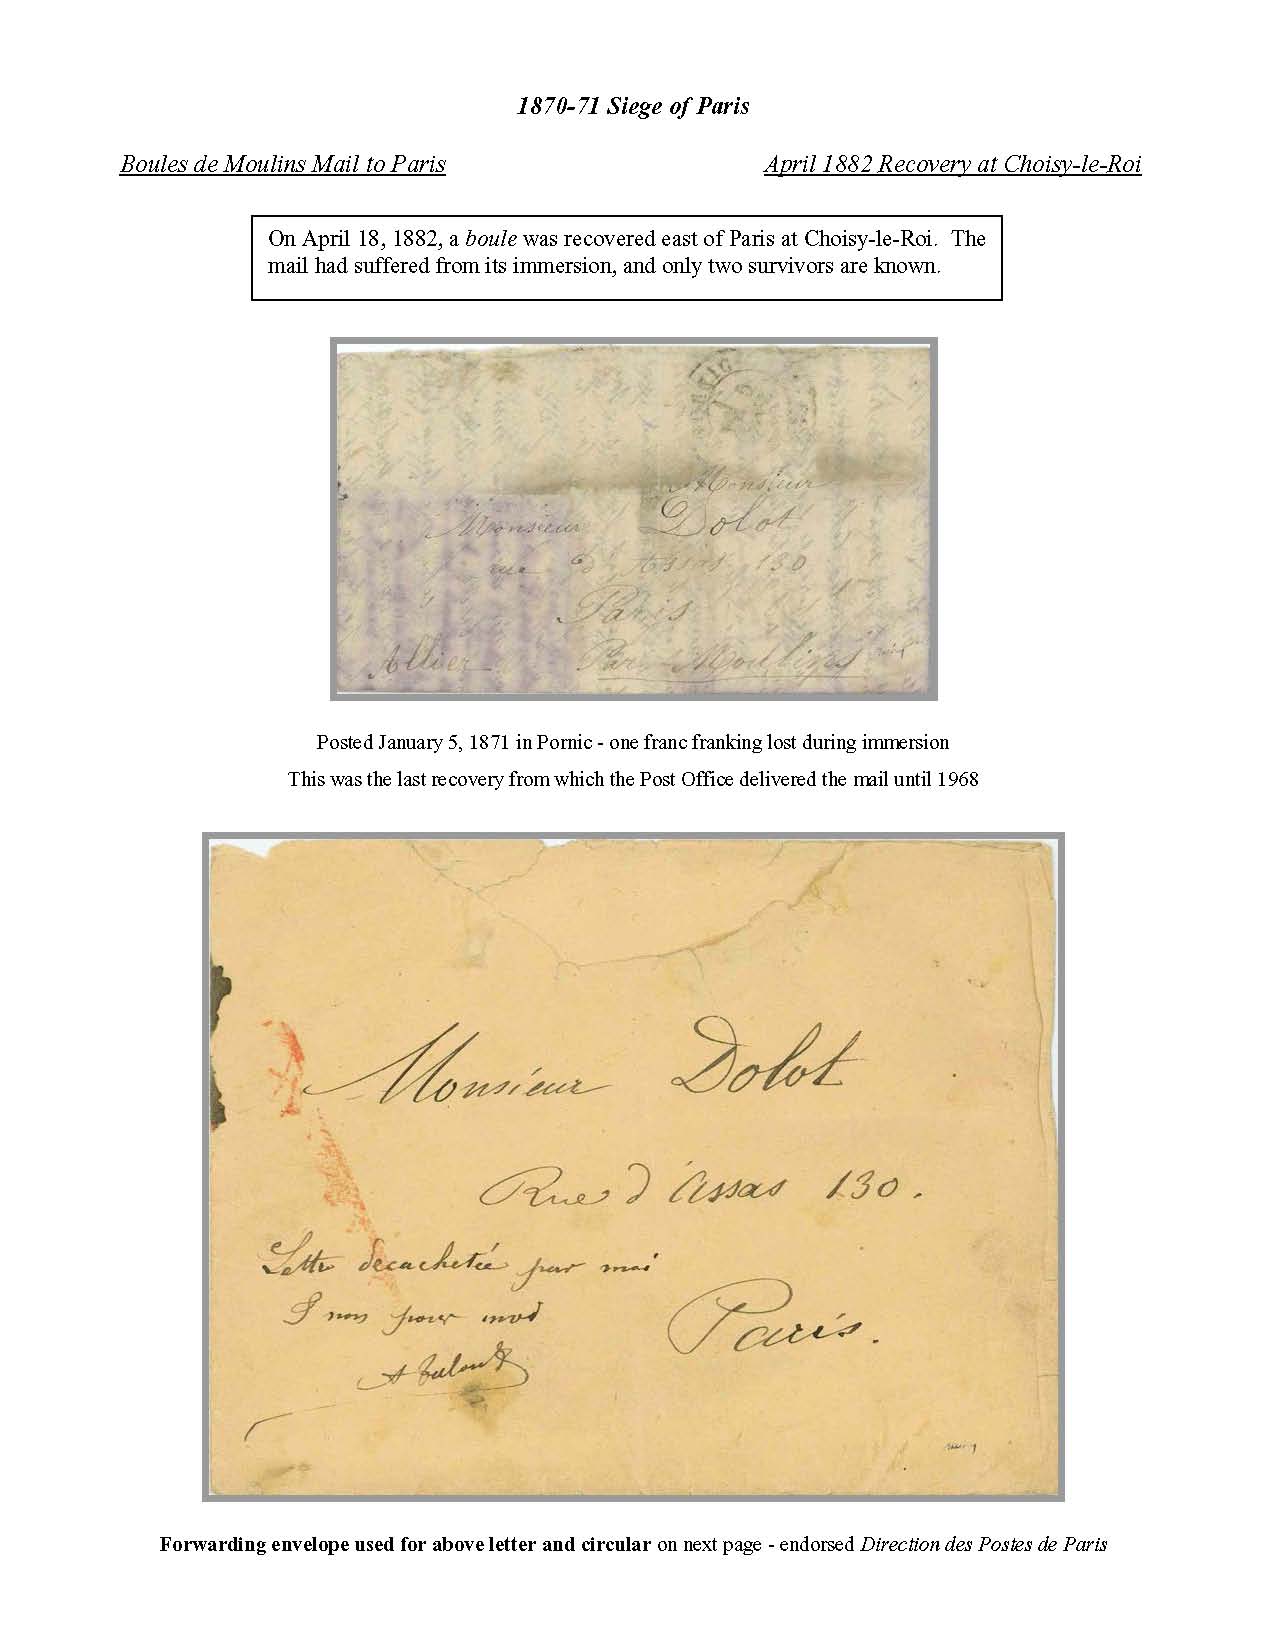 1870-71 Siege of Paris
Boules de Moulins Mail to Paris
April 1882 Recovery at Choisy-le-Roi
On April 18, 1882, a boule was recovered east of Paris at Choisy-le-Roi. The
mail had suffered from its immersion, and only two survivors are known.
Monsieur
Monsieur Dolot
rue d'Assas 130
Paris
Allier Par Moulins
Posted January 5, 1871 in Pornic - one franc franking lost during immersion
This was the last recovery from which the Post Office delivered the mail until 1968
Monsieur Dolot
Rue d'Assas 130.
Lettre decachetée par moi
non pour
Paris.
Forwarding envelope used for above letter and circular on next page - endorsed Direction des Postes de Paris